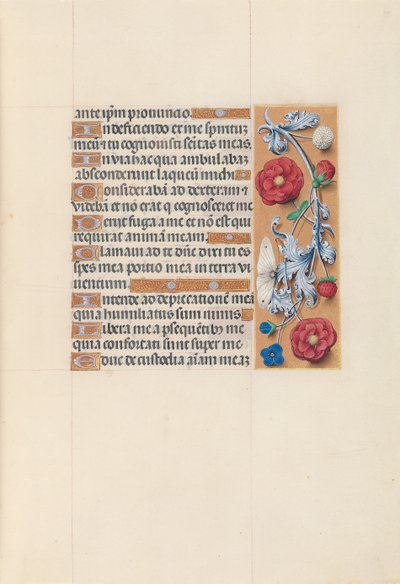 ante ipm pronuncio.
In deficiendo ex me spiritū
meū & tu cognovisti seītas meas.
In via hac qua ambulabaz
absconderunt laqueū michi
Considerabā ad dexteram &
videbā et nō erat q cognosceret me
Perijt fuga a me et nō est qui
requirat animā meam.
Clamavi ad te dn̄e dixi tu es
spes mea portio mea in terra vi
ventium.
Intende ad deprecationē meā
quia humiliatus sum nimis
Libera me a psequētibz me
quia confortati sunt super me
Educ de custodia aīam meaz